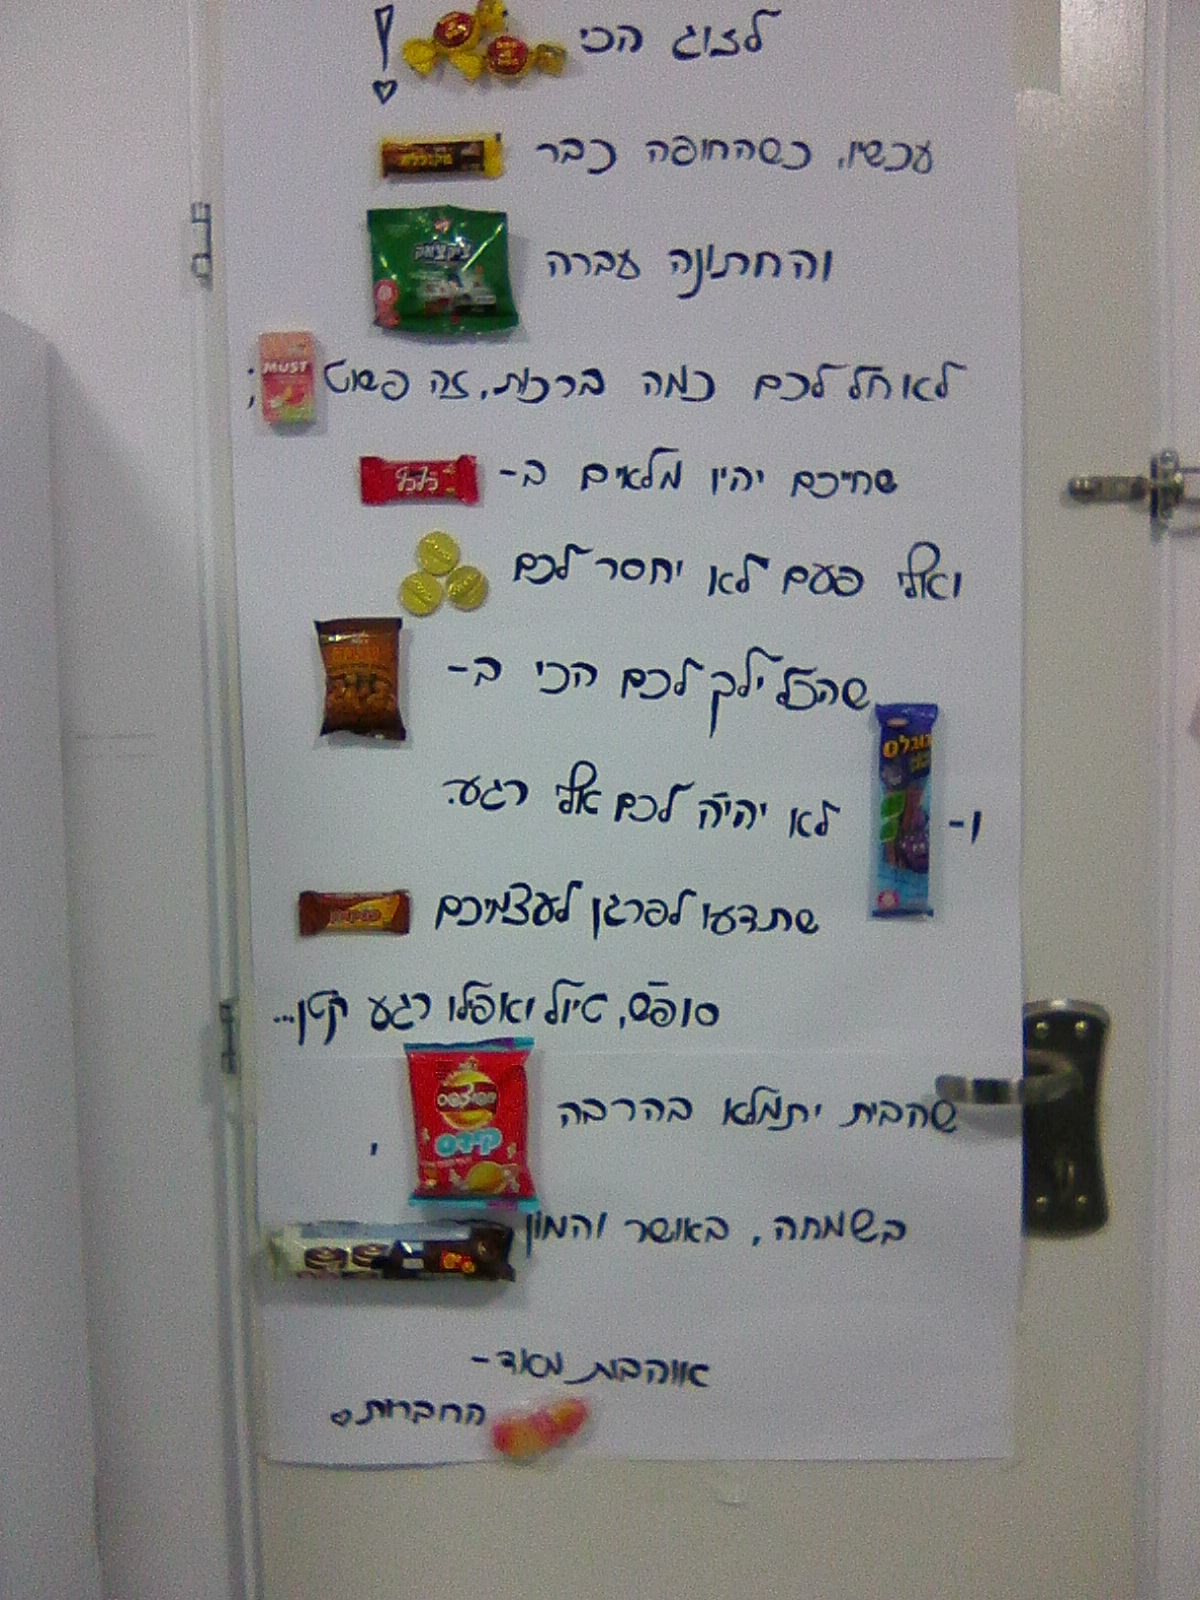 לזוג הכי !
עכשיו, כשהחופה כבר מקופלת
והחתונה עברה ציקצאק
לאחל לכם כמה ברכות, זה פשוט MUST ;
שחייכם יהיו מלאים ב- כיף כף
ואף פעם לא יחסר לכם
שהכל ילך לכם הכי ב-
ו- רוגלס לא יהיה לכם אף רגע.
שתדעו לפרגן לעצמיכם
סופש, טיול ואפילו רגע קטן...
שהבית יתמלא בהרבה תפוציפס קידס ,
בשמחה, באושר והמון
אוהבות מאוד-
החברות